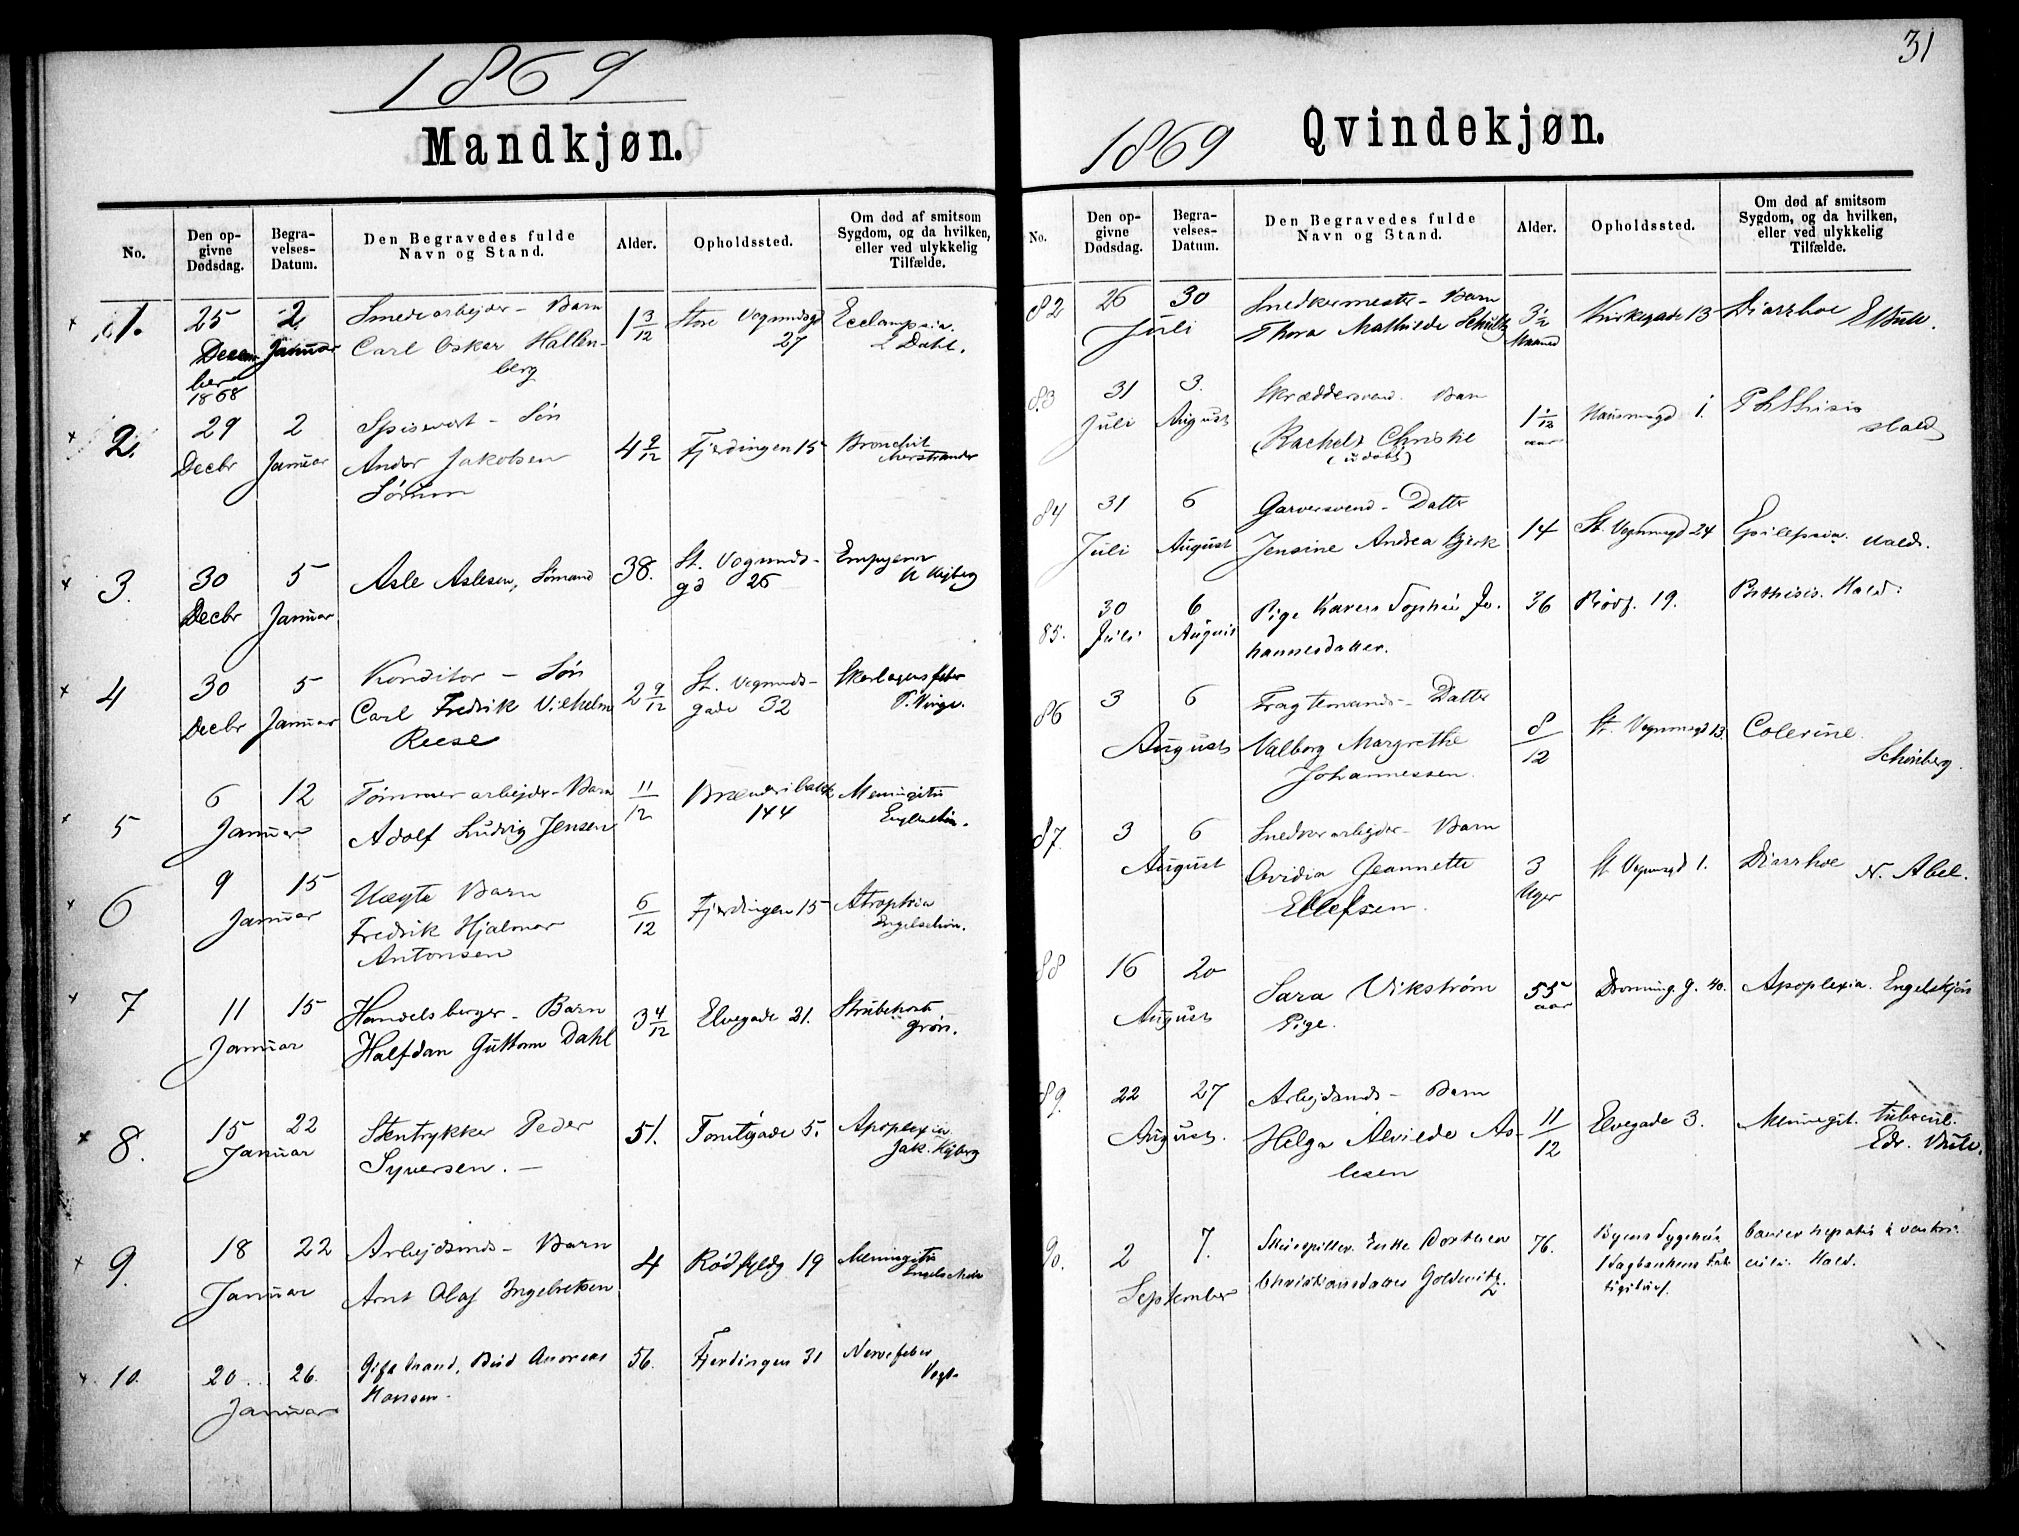 1869
Mandkjøn.
No.
Den opgivne Dødsdag.
Begravelses-Datum.
Den Begravedes fulde Navn og Stand.
Alder.
Opholdssted.
Om død af smitsom Sygdom, og da hvilken, eller ved ulykkelig Tilfælde.
1. 25 2 Smedarbejder - Barn 1 3/12 Store Vognmdsgd Eclampsia.
December Januar Carl Oskar Hallen- 27 Dahl.
1868 berg
2. 29 2 Spisevert - Søn 4 9/12 Fjerdingen 15 Bronchit
Decbr Januar Andor Jakobsen
Sørum
3. 30 5 Asle Aslesen, Sömand 38. St. Vognmds- Empyem
Decbr Januar gd 26
4 30 5 Konditor - Søn 2 9/12 St. Vognmds- Skarlagensfeber
Decbr Januar Carl Fredrik Vilhelm gade 32 P. Winge.
Reese
5 6 12 Tømmerarbejder - Barn 11/12 Meningitis
Januar Adolf Ludvig Jensen 144
6 9 15 Uægte Barn 6/12 Fjerdingen 15 Atrophia
Januar Fredrik Hjalmar Engelschiøn.
Antonsen
7 11 15 Handelsborger - Barn 3 4/12 Elvegade 21. Strubehoste
Januar Halfdan Guttorm Dahl Grøn.
8. 15 22 Stentrykker Peder 51. Tomtegade 5. Apoplexia
Januar Syversen. -
9. 18 22 Arbejdsmds - Barn 4 Rødfyldg 19 Meningitis
Januar Arnt Olaf Ingebretsen Engelschiøn
10. 20 26. Gift Mand, Bud Andreas 56. Fjerdingen 31 Nervefeber
Januar Hansen. Vogt.
31
1869
Qvindekjøn.
No.
Den opgivne Dødsdag.
Begravelses-Datum.
Den Begravedes fulde Navn og Stand.
Alder.
Opholdssted.
Om død af smitsom Sygdom, og da hvilken, eller ved ulykkelig Tilfælde.
82 26 30 Snedkermester - Barn 3 1/2 Kirkegade 13 Diarrhoe E Bull.
Juli Thora Mathilde Schultz Maaned
83 31 3. Skræddersvend. Barn 1 1/12 Hausmagd 1. Phthisis
Juli August Rachel Christie aar Hald
(udøbt)
84 31 6 Garversvend - Datter 14 St. Vognmagd 24 Epilepsia. Hald.
Juli August Jensine Andrea Bjerk
85. 30 6 Pige Karen Sophie Jo- 36 19. Phthisis. Hald.
Juli August hannesdatter.
86 3 6 Fragtemands - Datter 8/12 St. Vognmagd 13 Colerine.
August Valborg Margrethe Schønberg.
Johannessen.
87. 3 6 Snedkerarbejder - Barn 3 St Vognmgd 1. Diarrhoe N. Abel.
August Ovidia Jeannette Uger
Ellefsen.
88 16 20 Sara Vikstrøm 55 Dronning.g. 40. Apoplexia. Engelskjøn
August Pige. aar
89. 22 27 Arbejdsmds - Barn 11/12 Elvegade 3. Meningit. tubercul.
August. Helga Alvilde As- Edv. Bull.
lesen
90. 2 7. Skuespiller. Enke Dorthea 76. Byens Sygehus
September Christiansdatter Goldewitz Hald.